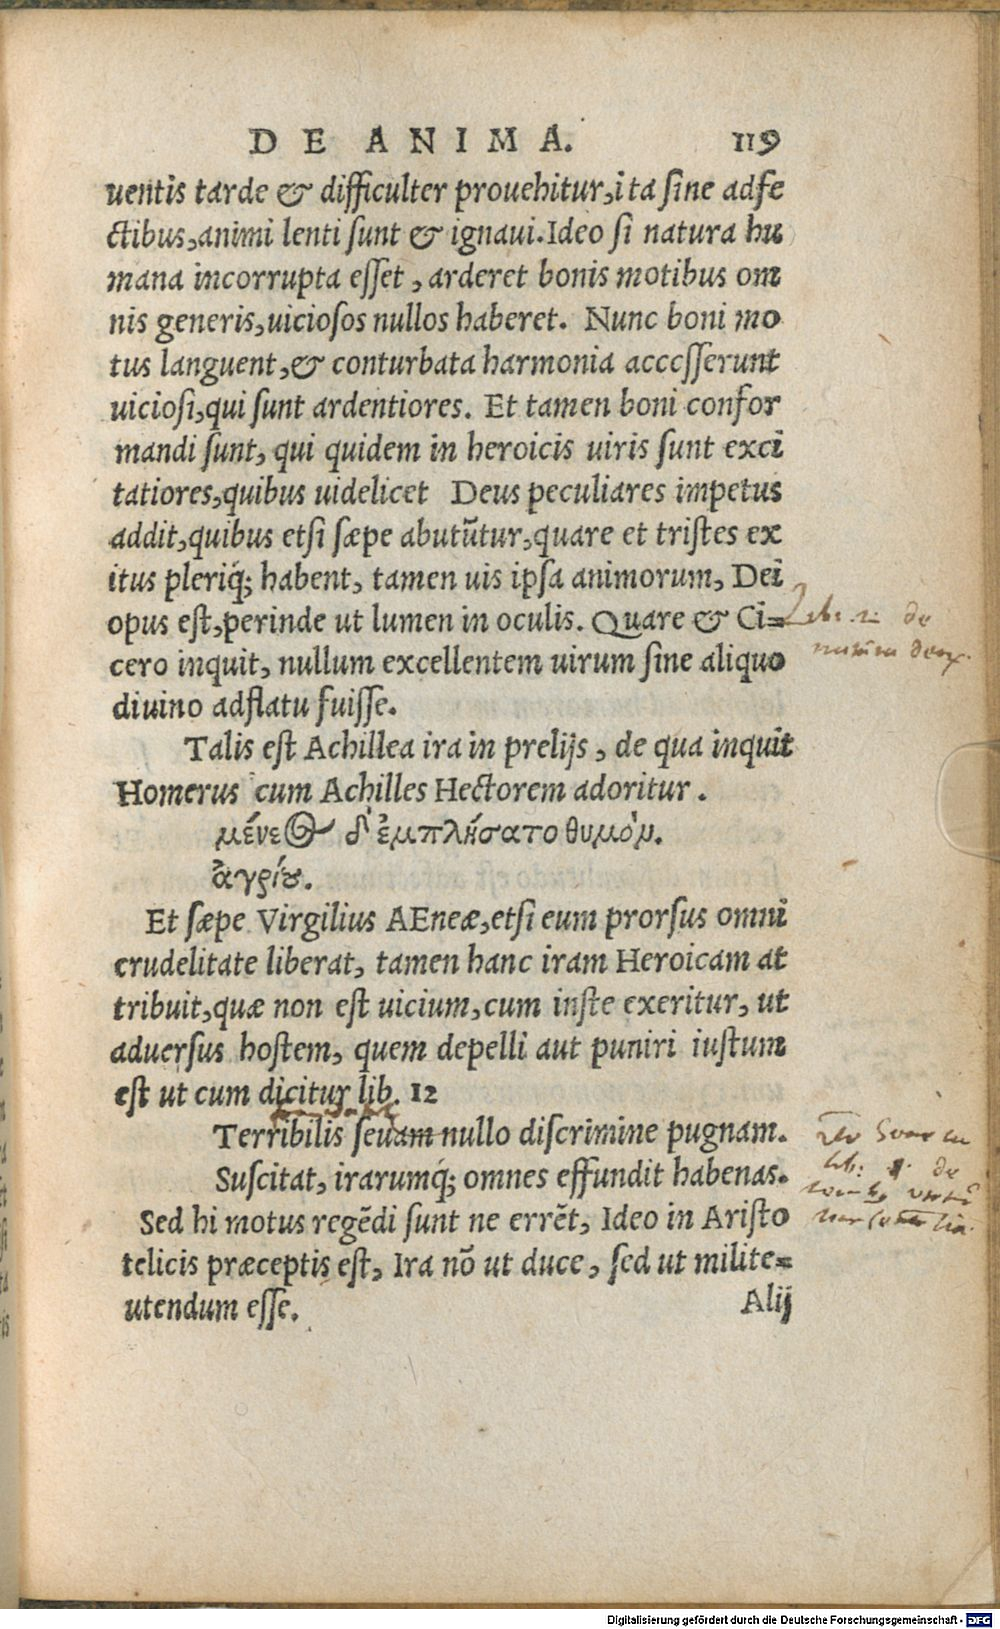 DE ANIMA. 119
uentis tarde & difficulter prouehitur,ita sine adfe
ctibus,animi lenti sunt & ignaui.Ideo si natura hu
mana incorrupta esset, arderet bonis motibus om
nis generis,uiciosos nullos haberet. Nunc boni mo
tus languent,& conturbata harmonia accesserunt
uiciosi,qui sunt ardentiores. Et tamen boni confor
mandi sunt, qui quidem in heroicis uiris sunt exci
tatiores,quibus uidelicet Deus peculiares impetus
addit,quibus etsi sæpe abutũtur,quare et tristes ex
itus pleriq; habent, tamen uis ipsa animorum, Dei
opus est,perinde ut lumen in oculis. Quare & Ci=
cero inquit, nullum excellentem uirum sine aliquo
diuino adflatu fuisse.
Lib. 2. de
natura deor.
Talis est Achillea ira in prelijs, de qua inquit
Homerus cum Achilles Hectorem adoritur.
μένεος δ' ἐμπλήσατο θυμὸν.
ἀγρίου.
Et sæpe Virgilius AEneæ,etsi eum prorsus omni
crudelitate liberat, tamen hanc iram Heroicam at
tribuit,quæ non est uicium,cum iuste exeritur, ut
aduersus hostem, quem depelli aut puniri iustum
est ut cum dicitur lib. 12
Terribilis seuam nullo discrimine pugnam.
Suscitat, irarumq; omnes effundit habenas.
Sed hi motus regẽdi sunt ne errẽt, Ideo in Aristo
telicis præceptis est, Ira nõ ut duce, sed ut milite=
utendum esse.
Alij
lib: 1. de
Digitalisierung gefördert durch die Deutsche Forschungsgemeinschaft - DFG